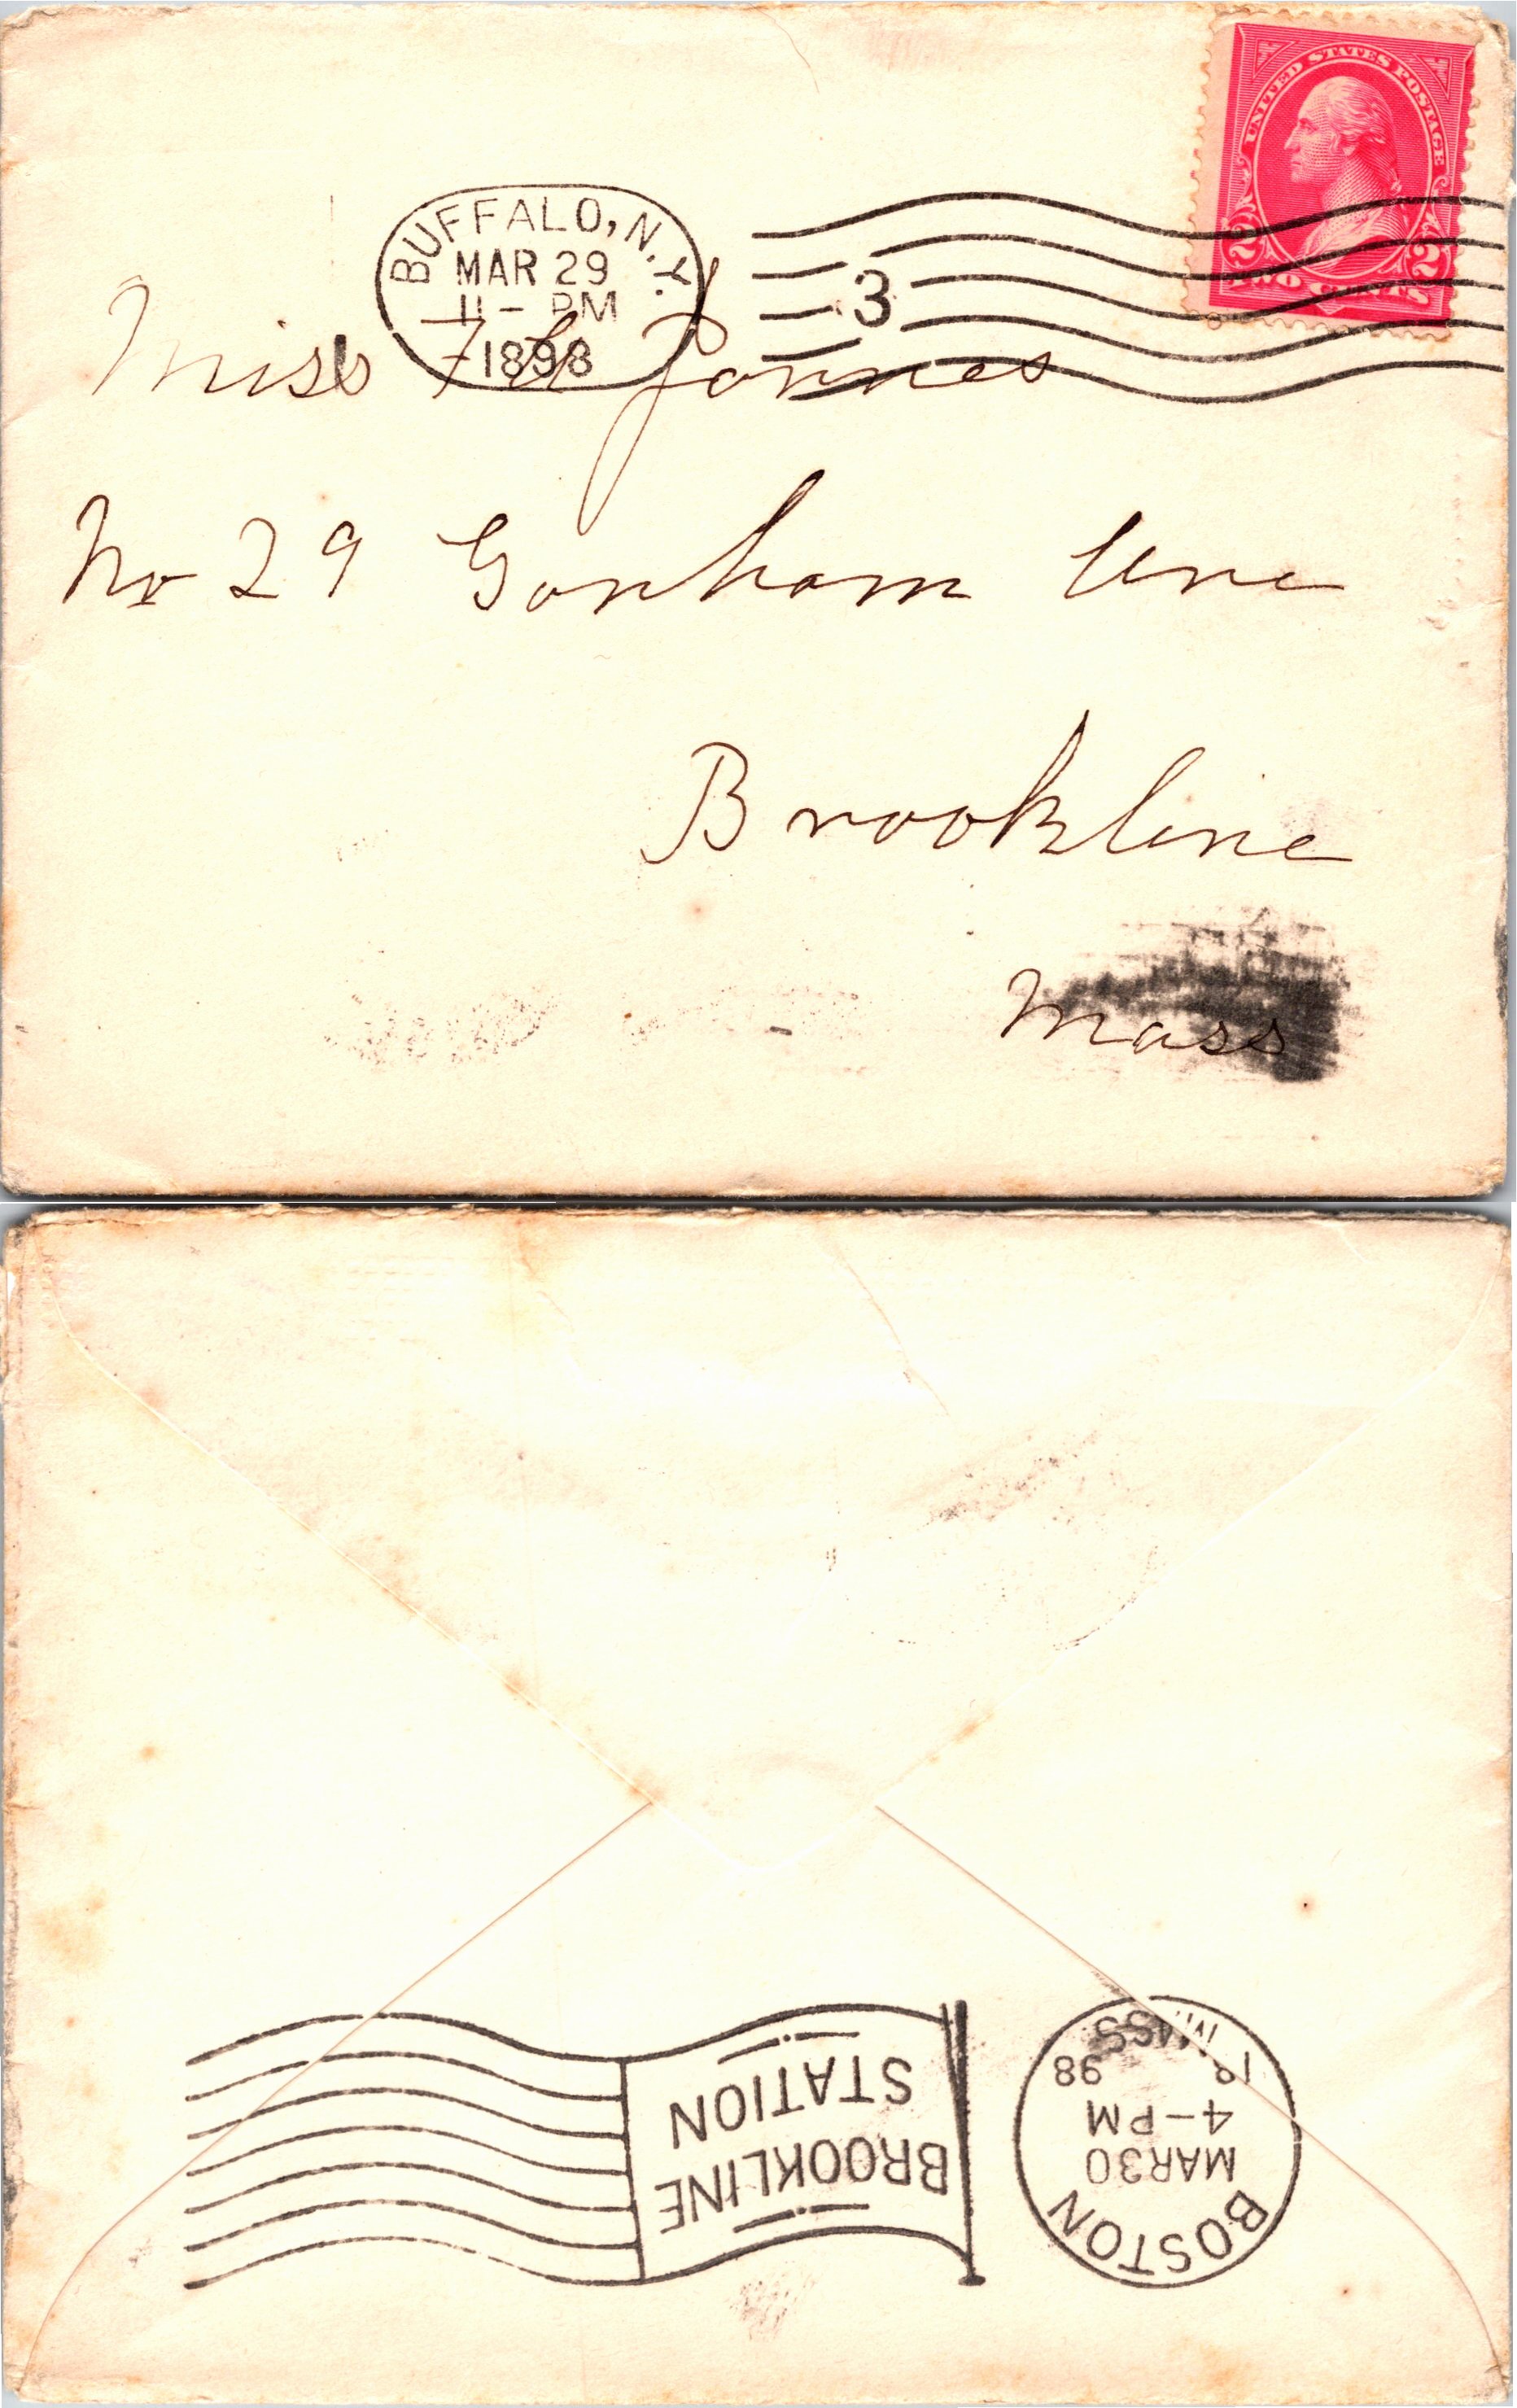 UNITED STATES POSTAGE
2 2
TWO CENTS
BUFFALO, N.Y.
MAR 29
11 - PM
1898
3
Miss
No 29 Gorham Ave
Brookline
Mass
BOSTON
MAR30
4-PM
98
MASS
BROOKLINE
STATION